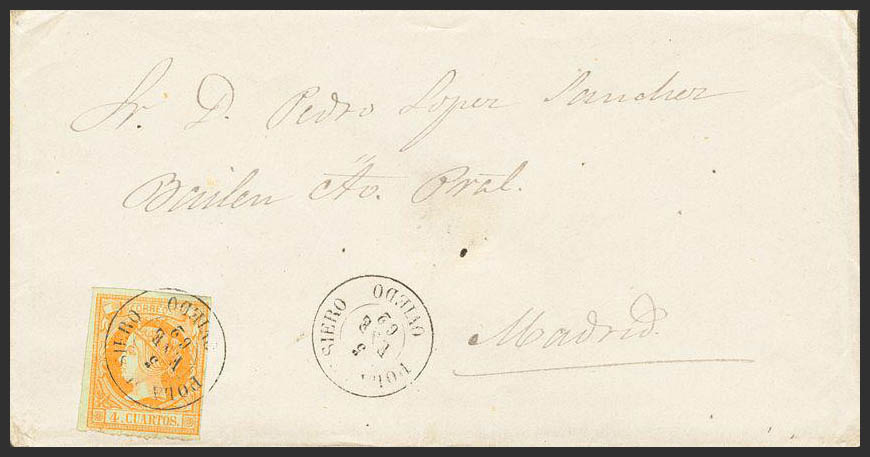 Sr. D. Pedro Lopez Sanchez
Bailen Pral.
Madrid.
CORREOS
4 CUARTOS.
POLA SIERO
5 ENE 62
OVIEDO
POLA SIERO
5 ENE 62
OVIEDO